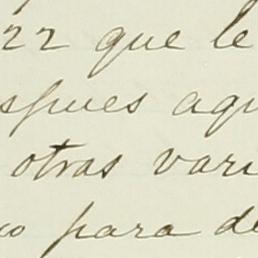 22 que le
spues aqu
otras vari
o para de